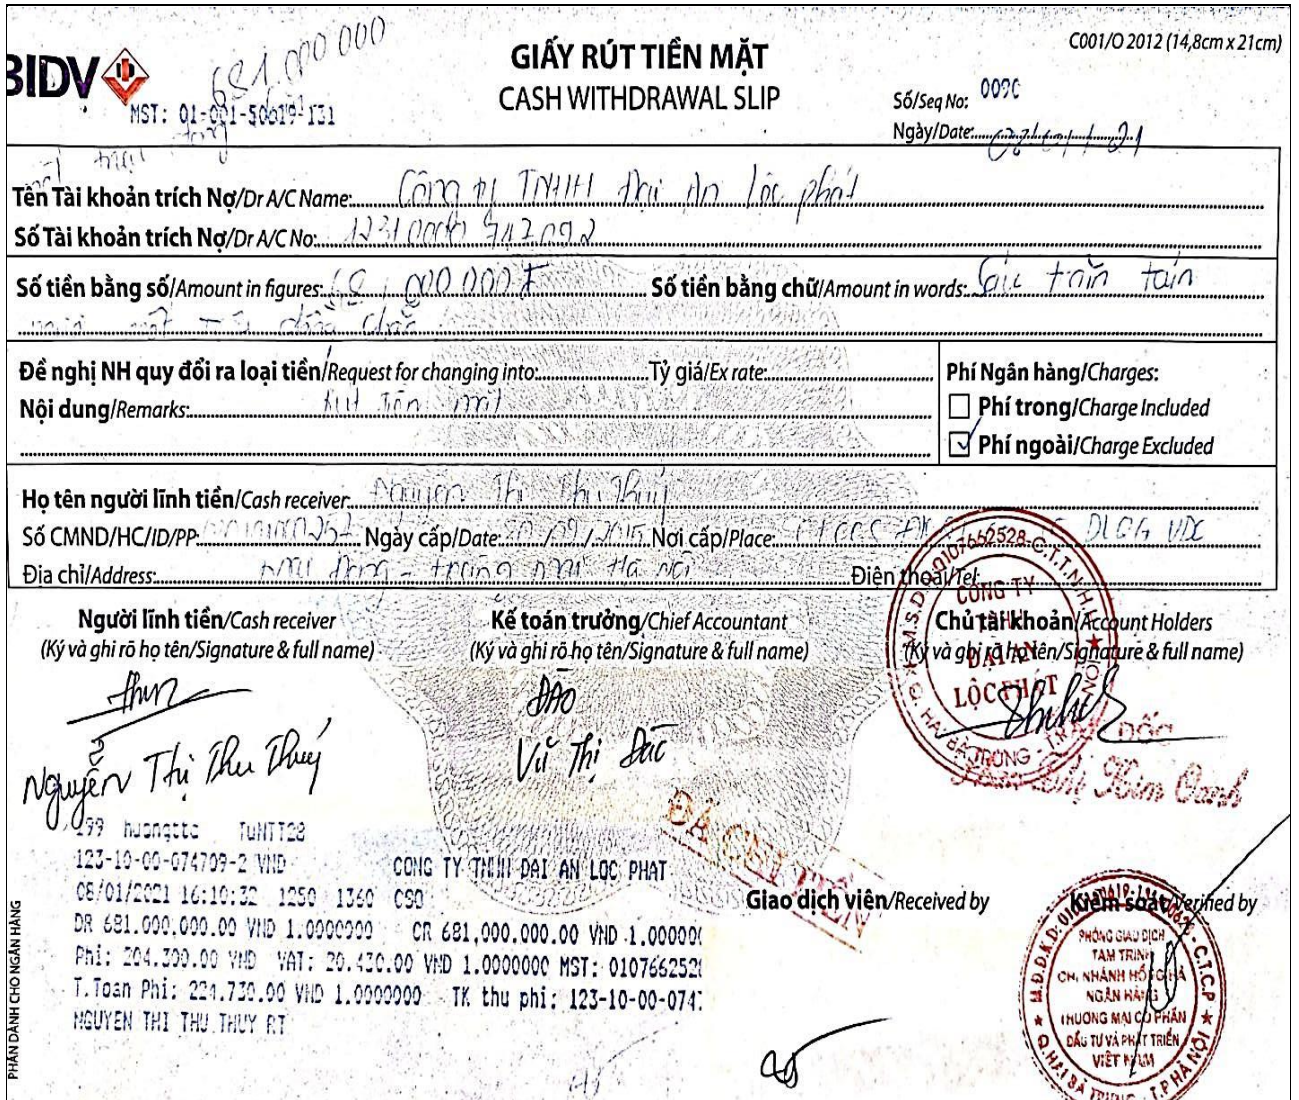 BIDV
681.000 000
GIẤY RÚT TIỀN MẶT
CASH WITHDRAWAL SLIP
C001/O 2012 (14,8cm x 21cm)
MST: 01-001-50619-131
Số/Seq No:
Ngày/Date:
Tên Tài khoản trích Nợ/Dr A/C Name: Công ty TNHH Đại An Lộc phát
Số Tài khoản trích Nợ/Dr A/C No:
Số tiền bằng số/Amount in figures: Số tiền bằng chữ/Amount in words: Sáu trăm tám
mươi mốt triệu đồng chẵn
Đề nghị NH quy đổi ra loại tiền/Request for changing into: Tỷ giá/Ex rate:
Nội dung/Remarks: Rút tiền mặt
Phí Ngân hàng/Charges:
Phí trong/Charge Included
Phí ngoài/Charge Excluded
Họ tên người lĩnh tiền/Cash receiver: Nguyễn Thị Thu Thuý
Số CMND/HC/ID/PP: Ngày cấp/Date: Nơi cấp/Place: DLQG VDC
Địa chỉ/Address: Hà Nội Điện thoại/Tel:
Người lĩnh tiền/Cash receiver
(Ký và ghi rõ họ tên/Signature & full name)
Kế toán trưởng/Chief Accountant
(Ký và ghi rõ họ tên/Signature & full name)
Chủ tài khoản/Account Holders
(Ký và ghi rõ họ tên/Signature & full name)
M.S.D.N:0107662528-C.T.T.N.H.H
CÔNG TY
TNHH
ĐẠI AN
LỘC PHÁT
Q. HAI BÀ TRƯNG - T.P HÀ NỘI
ĐÀO
Vũ Thị Đào
Nguyễn Thị Thu Thuý
GIÁM ĐỐC
Kim Oanh
299 huongttc TuNTT28
123-10-00-074709-2 VND CONG TY TNHH DAI AN LOC PHAT
08/01/2021 16:10:32 1250 1360 CSO
DR 681.000,000.00 VND 1.0000000 CR 681,000,000.00 VND 1.000000
Phi: 204.300.00 VND VAT: 20.430.00 VND 1.0000000 MST: 010766252
T.Toan Phi: 224.730.00 VND 1.0000000 TK thu phi: 123-10-00-074
NGUYEN THI THU THUY RT
ĐÃ CHI TIỀN
Giao dịch viên/Received by
Kiểm soát/Verified by
PHÒNG GIAO DỊCH
TAM TRINH
CHI NHÁNH HỒNG HÀ
NGÂN HÀNG
THƯƠNG MẠI CỔ PHẦN
ĐẦU TƯ VÀ PHÁT TRIỂN
VIỆT NAM
Q. HAI BÀ TRƯNG - T.P HÀ NỘI
PHẦN DÀNH CHO NGÂN HÀNG